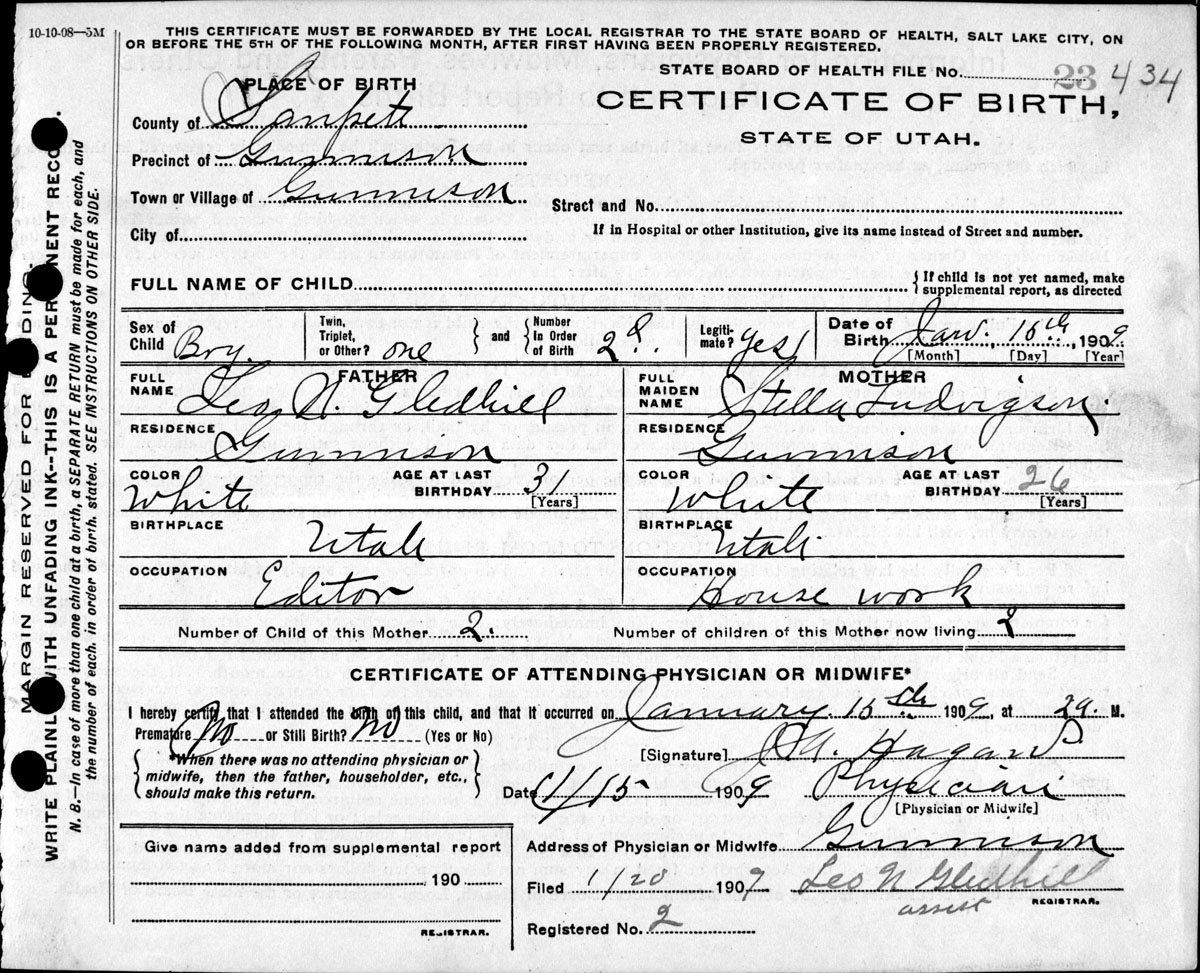 10-10-08—5M
THIS CERTIFICATE MUST BE FORWARDED BY THE LOCAL REGISTRAR TO THE STATE BOARD OF HEALTH, SALT LAKE CITY, ON
OR BEFORE THE 5TH OF THE FOLLOWING MONTH, AFTER FIRST HAVING BEEN PROPERLY REGISTERED.
PLACE OF BIRTH
STATE BOARD OF HEALTH FILE NO. 23 434
CERTIFICATE OF BIRTH,
STATE OF UTAH.
County of Sanpete
Precinct of Gunnison
Town or Village of Gunnison
Street and No.
City of
If in Hospital or other Institution, give its name instead of Street and number.
FULL NAME OF CHILD
{If child is not yet named, make
supplemental report, as directed
Sex of Child Boy. Twin, Triplet, or Other? one } and { Number In Order of Birth 2d. Legiti- mate? Yes Date of Birth Jan. 15th, 1909
[Month] [Day] [Year]
FATHER MOTHER
FULL NAME Leo N. Gledhill FULL MAIDEN NAME Stella Ludvigson
RESIDENCE Gunnison RESIDENCE Gunnison
COLOR White AGE AT LAST BIRTHDAY 31 [Years] COLOR White AGE AT LAST BIRTHDAY 26 [Years]
BIRTHPLACE Utah BIRTHPLACE Utah
OCCUPATION Editor OCCUPATION House work
Number of Child of this Mother 2. Number of children of this Mother now living 2
CERTIFICATE OF ATTENDING PHYSICIAN OR MIDWIFE*
I hereby certify that I attended the birth of this child, and that it occurred on January 15th 1909, at M.
Premature No or Still Birth? No (Yes or No)
{*When there was no attending physician or
midwife, then the father, householder, etc.,
should make this return.}
[Signature] Hagan
Date 1/15 1909 Physician
[Physician or Midwife]
Give name added from supplemental report
, 190
REGISTRAR.
Address of Physician or Midwife Gunnison
Filed 1/20 1909 Leo N Gledhill
assist REGISTRAR.
Registered No. 2
MARGIN RESERVED FOR BINDING.
WRITE PLAINLY WITH UNFADING INK--THIS IS A PERMANENT RECORD.
N. B.—In case of more than one child at a birth, a SEPARATE RETURN must be made for each, and
the number of each, in order of birth, stated. SEE INSTRUCTIONS ON OTHER SIDE.